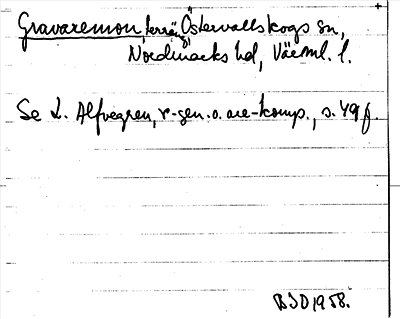 Gravaremon, terräng Östervallskogs sn,
Nordmarks hd, Värml. l.
Se L. Alfvegren, r-gen. o. are-komp., s. 49 f.
BJD 1958.